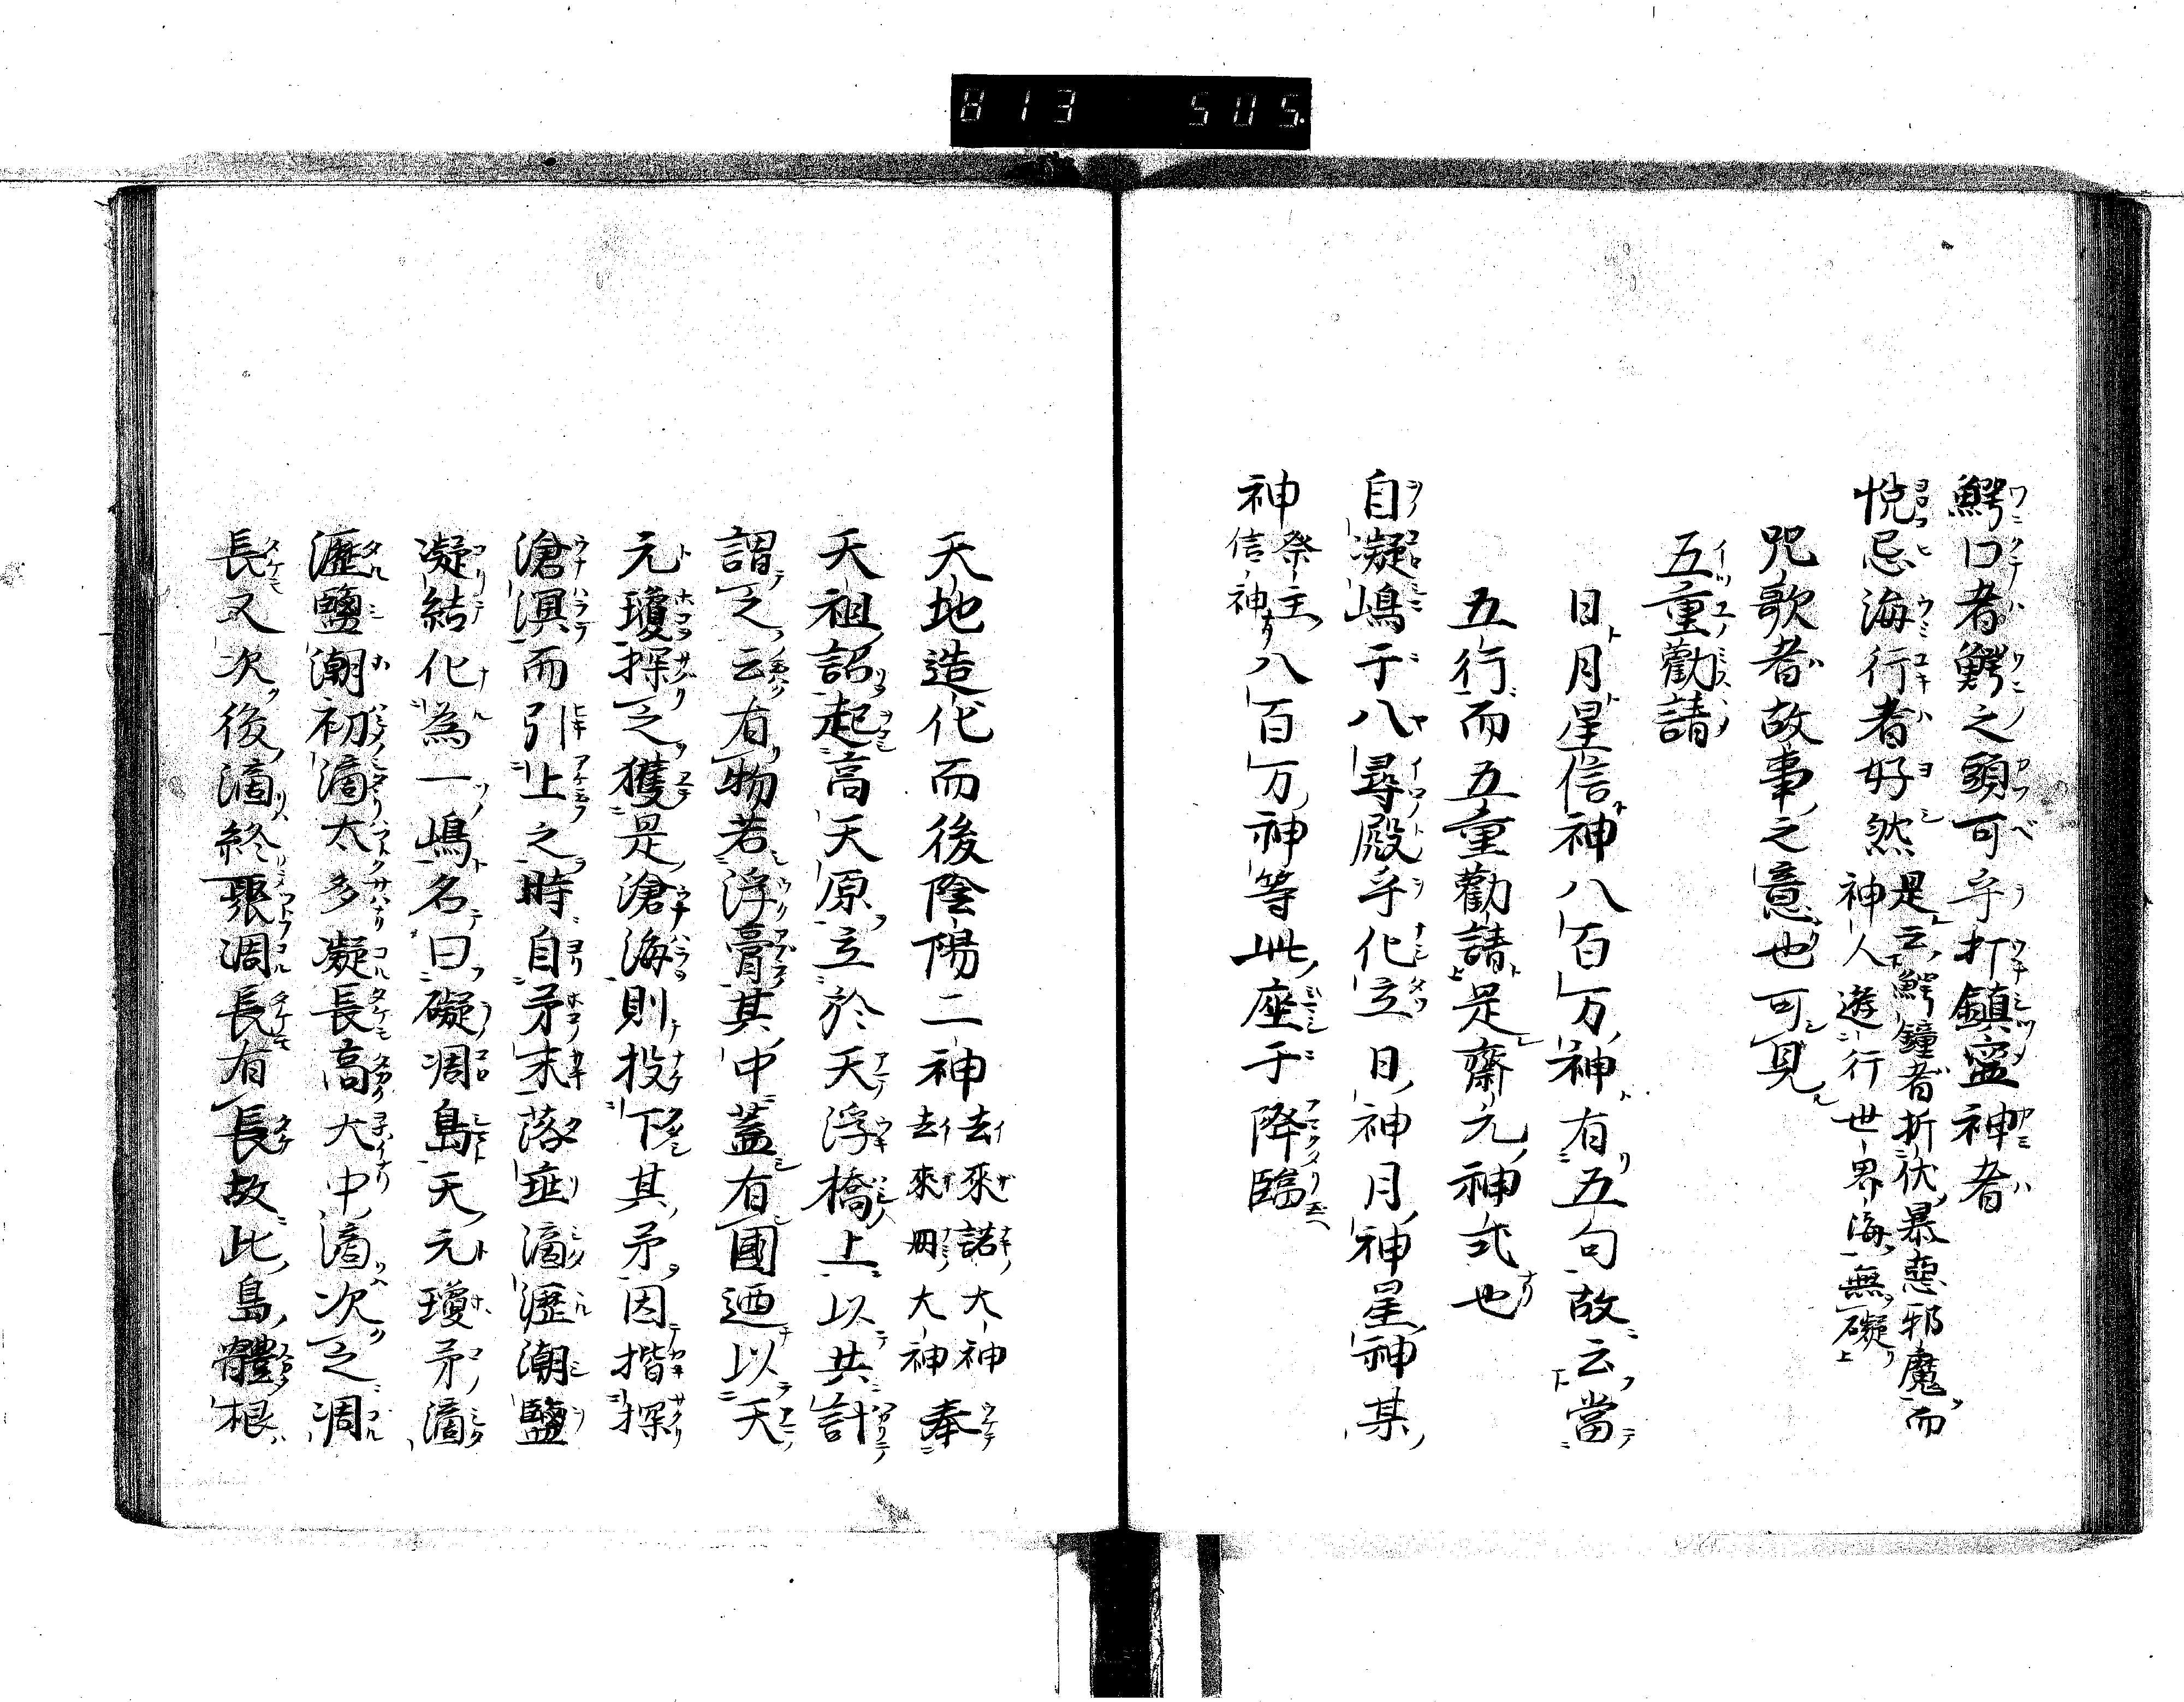 813 505.
鰐口者鰐之頭可乎打鎮寍神者
悦忌海行者好然是云鰐鐘者折伏暴惡邪魔而
神人遊行世界海無礙
咒歌者故事之意也可見
五重勸請
日月星信神八百万神有五句故云當
五行而五重勸請是齋元神式也
自凝嶋于八尋殿乎化立日神月神星神某
神祭主
信神八百万神等此座于降臨
天地造化而後陰陽二神去來諾大神
去來冊大神奉
天祖詔起高天原立於天浮橋上以共計
謂之云有物若浮膏其中蓋有國廼以天
元瓊探之獲是滄海則投下其矛因揩探
滄溟而引上之時自矛末落垂滴瀝潮鹽
凝結化為一嶋名曰礙凋島天元瓊矛滴
瀝鹽潮初滴太多凝長高大中滴次之凋
長又次後滴終聚凋長有長故此島體根